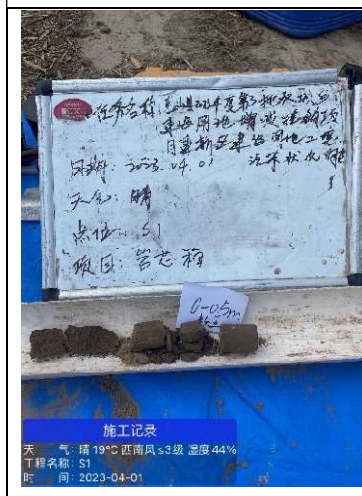 任务名称:
县2022年度第3批次城乡
建设用地增减挂钩项
目建新区建设用地土壤
污染状况调
日期: 2023.04.01
天气: 晴
点位: S1
项目: 岩芯箱
0-0.5m
施工记录
天 气: 晴 19°C 西南风≤3级 湿度44%
工程名称: S1
时 间: 2023-04-01